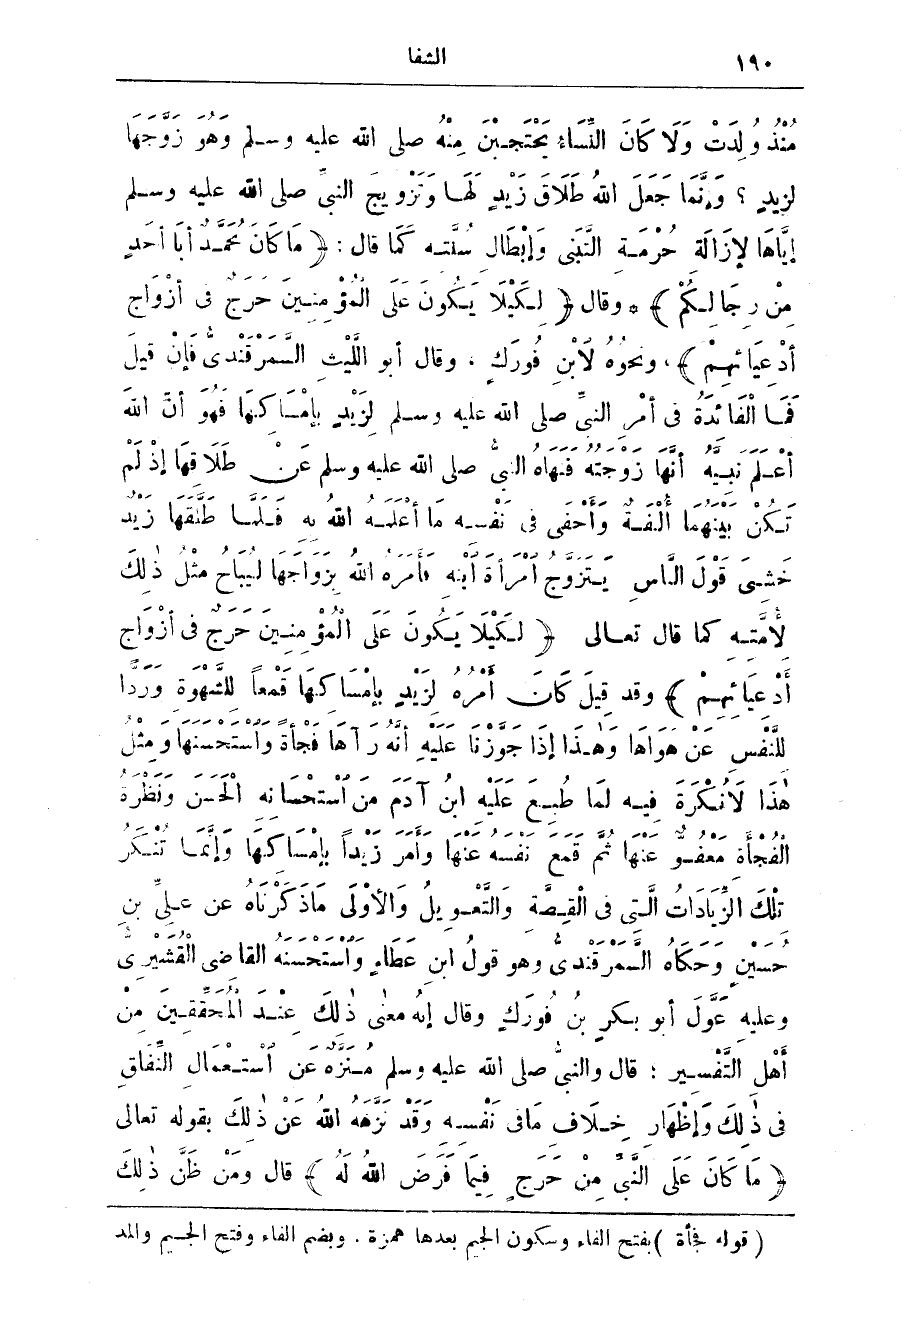 ١٩٠ الشفا
مُنْذُ وُلِدَتْ وَلَا كَانَ النِّسَاءُ يَحْتَجِبْنَ مِنْهُ صلى الله عليه وسلم وَهُوَ زَوَّجَهَا
لِزَيْدٍ ؟ وَإِنَّمَا جَعَلَ اللهُ طَلَاقَ زَيْدٍ لَهَا وَتَزْوِيجَ النبىِّ صلى الله عليه وسلم
إِيَّاهَا لِإِزَالَةِ حُرْمَةِ التَّبَنِّى وَإِبْطَالِ سُنَّتِهِ كَمَا قال : ﴿ مَا كَانَ مُحَمَّدٌ أَبَا أَحَدٍ
مِنْ رِجَالِكُمْ ﴾ * وقال ﴿ لِكَيْلَا يَكُونَ عَلَى الْمُؤْمِنِينَ حَرَجٌ فى أَزْوَاجِ
أَدْعِيَائِهِمْ ﴾ ، ونحوُهُ لِابْنِ فُورَكٍ ، وقال أبو اللَّيْثِ السَّمَرْقَنْدِىُّ فَإِنْ قِيلَ
فَمَا الْفَائِدَةُ فى أَمْرِ النبىِّ صلى الله عليه وسلم لِزَيْدٍ بِإِمْسَاكِهَا فَهُوَ أَنَّ اللهَ
أَعْلَمَ نَبِيَّهُ أَنَّهَا زَوْجَتُهُ فَنَهَاهُ النبىُّ صلى الله عليه وسلم عَنْ طَلَاقِهَا إِذْ لَمْ
تَكُنْ بَيْنَهُمَا أُلْفَةٌ وَأَخْفَى فى نَفْسِهِ مَا أَعْلَمَهُ اللهُ بِهِ فَلَمَّا طَلَّقَهَا زَيْدٌ
خَشِىَ قَوْلَ النَّاسِ يَتَزَوَّجُ امْرَأَةَ ابْنِهِ فَأَمَرَهُ اللهُ بِزَوَاجِهَا لِيُبَاحَ مِثْلُ ذٰلِكَ
لِأُمَّتِهِ كما قال تعالى ﴿ لِكَيْلَا يَكُونَ عَلَى الْمُؤْمِنِينَ حَرَجٌ فى أَزْوَاجِ
أَدْعِيَائِهِمْ ﴾ وقد قِيلَ كَانَ أَمْرُهُ لِزَيْدٍ بِإِمْسَاكِهَا قَمْعاً لِلشَّهْوَةِ وَرَدًّا
لِلنَّفْسِ عَنْ هَوَاهَا وَهٰذَا إِذَا جَوَّزْنَا عَلَيْهِ أَنَّهُ رَآهَا فَجْأَةً وَاسْتَحْسَنَهَا وَمِثْلُ
هٰذَا لَا نُكْرَةَ فِيهِ لِمَا طُبِعَ عَلَيْهِ ابنُ آدَمَ مِنَ اسْتِحْسَانِهِ الْحَسَنَ وَنَظْرَةُ
الْفَجْأَةِ مَعْفُوٌّ عَنْهَا ثُمَّ قَمَعَ نَفْسَهُ عَنْهَا وَأَمَرَ زَيْداً بِإِمْسَاكِهَا وَإِنَّمَا تُنْكَرُ
تِلْكَ الزِّيَادَاتُ الَّتِى فى الْقِصَّةِ وَالتَّعْوِيلُ وَالْأَوْلَى مَا ذَكَرْنَاهُ عن عَلِىِّ بنِ
حُسَيْنٍ وَحَكَاهُ السَّمَرْقَنْدِىُّ وهو قولُ ابنِ عَطَاءٍ وَاسْتَحْسَنَهُ القَاضِى الْقُشَيْرِى
وعليه عَوَّلَ أبو بكرِ بنُ فُورَكٍ وقال إنه معنٰى ذٰلِكَ عِنْدَ الْمُحَقِّقِينَ مِنْ
أَهْلِ التَّفْسِيرِ : قال والنبىُّ صلى الله عليه وسلم مُنَزَّهٌ عَنِ اسْتِعْمَالِ النِّفَاقِ
فى ذٰلِكَ وَإِظْهَارِ خِلَافِ مَا فى نَفْسِهِ وَقَدْ نَزَّهَهُ اللهُ عَنْ ذٰلِكَ بقوله تعالى
﴿ مَا كَانَ عَلَى النَّبِىِّ مِنْ حَرَجٍ فِيمَا فَرَضَ اللهُ لَهُ ﴾ قال وَمَنْ ظَنَّ ذٰلِكَ
( قوله فجأة ) بفتح الفاء وسكون الجيم بعدها همزة . وبضم الفاء وفتح الجيم والمد